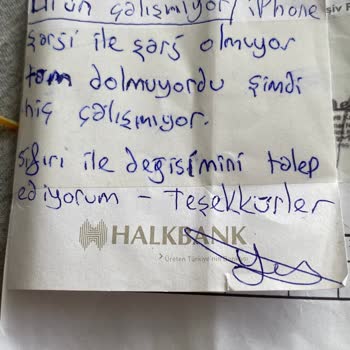 Ürün çalışmıyor, iPhone
şarşi ile şarş olmuyor
tam dolmuyordu şimdi
hiç çalışmıyor.
Sıfırı ile değişimini talep
ediyorum - Teşekkürler
HALKBANK
Üreten Türkiye'nin Bankası